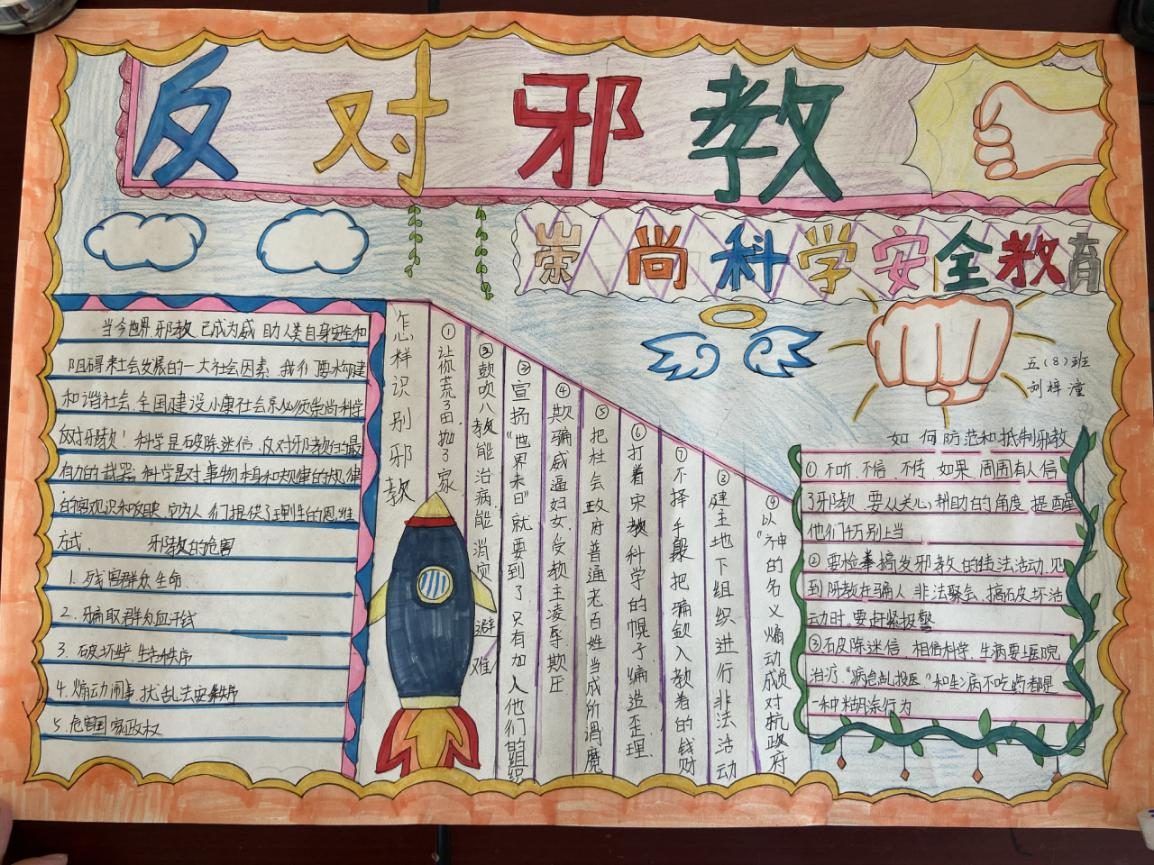 反对邪教
崇尚科学安全教育
五(8)班
刘梓潼
当今世界,邪教已成为威助人类自身安全和
阻碍着社会发展的一大社会因素,我们要构建
和谐社会,全国建设小康社会就必须崇尚科学
反对邪教!科学是破除迷信,反对邪教的最
有力的武器,科学是对事物本和规律的规律
的客观认识和反映,它为人们提供了理性的思维
方式.
邪教的危害
1.残害群众生命
2.骗取群众血汗钱
3.破坏生秩序
4.煽动闹事,扰乱法安秩序
5.危害国家政权
怎样识别邪教
①让你荒了田抛了家
②鼓吹入教能治病能消灾避难
③宣扬"世界末日"就要到了只有加入他们的组织
④欺骗威逼妇女受教主凌辱欺压
⑤把社会政府普通老百姓当成所谓魔
⑥打着宗教科学的幌子编造歪理
⑦不择手段把骗敛入教者的钱财
⑧建立地下组织进行非法活动
⑨以"神的名义煽动成员对抗政府
如何防范和抵制邪教
①不听.不信.不传.如果周围有人信
了邪教.要从关心,帮助的角度,提醒
他们千万别上当
②要检举揭发邪教的违法活动,见
到邪教在骗人.非法聚会.搞破坏活
动时.要赶紧报警
③破除迷信,相信科学.生病要上医院
治疗."病急乱投医"和生病不吃药都是
一种糊涂行为